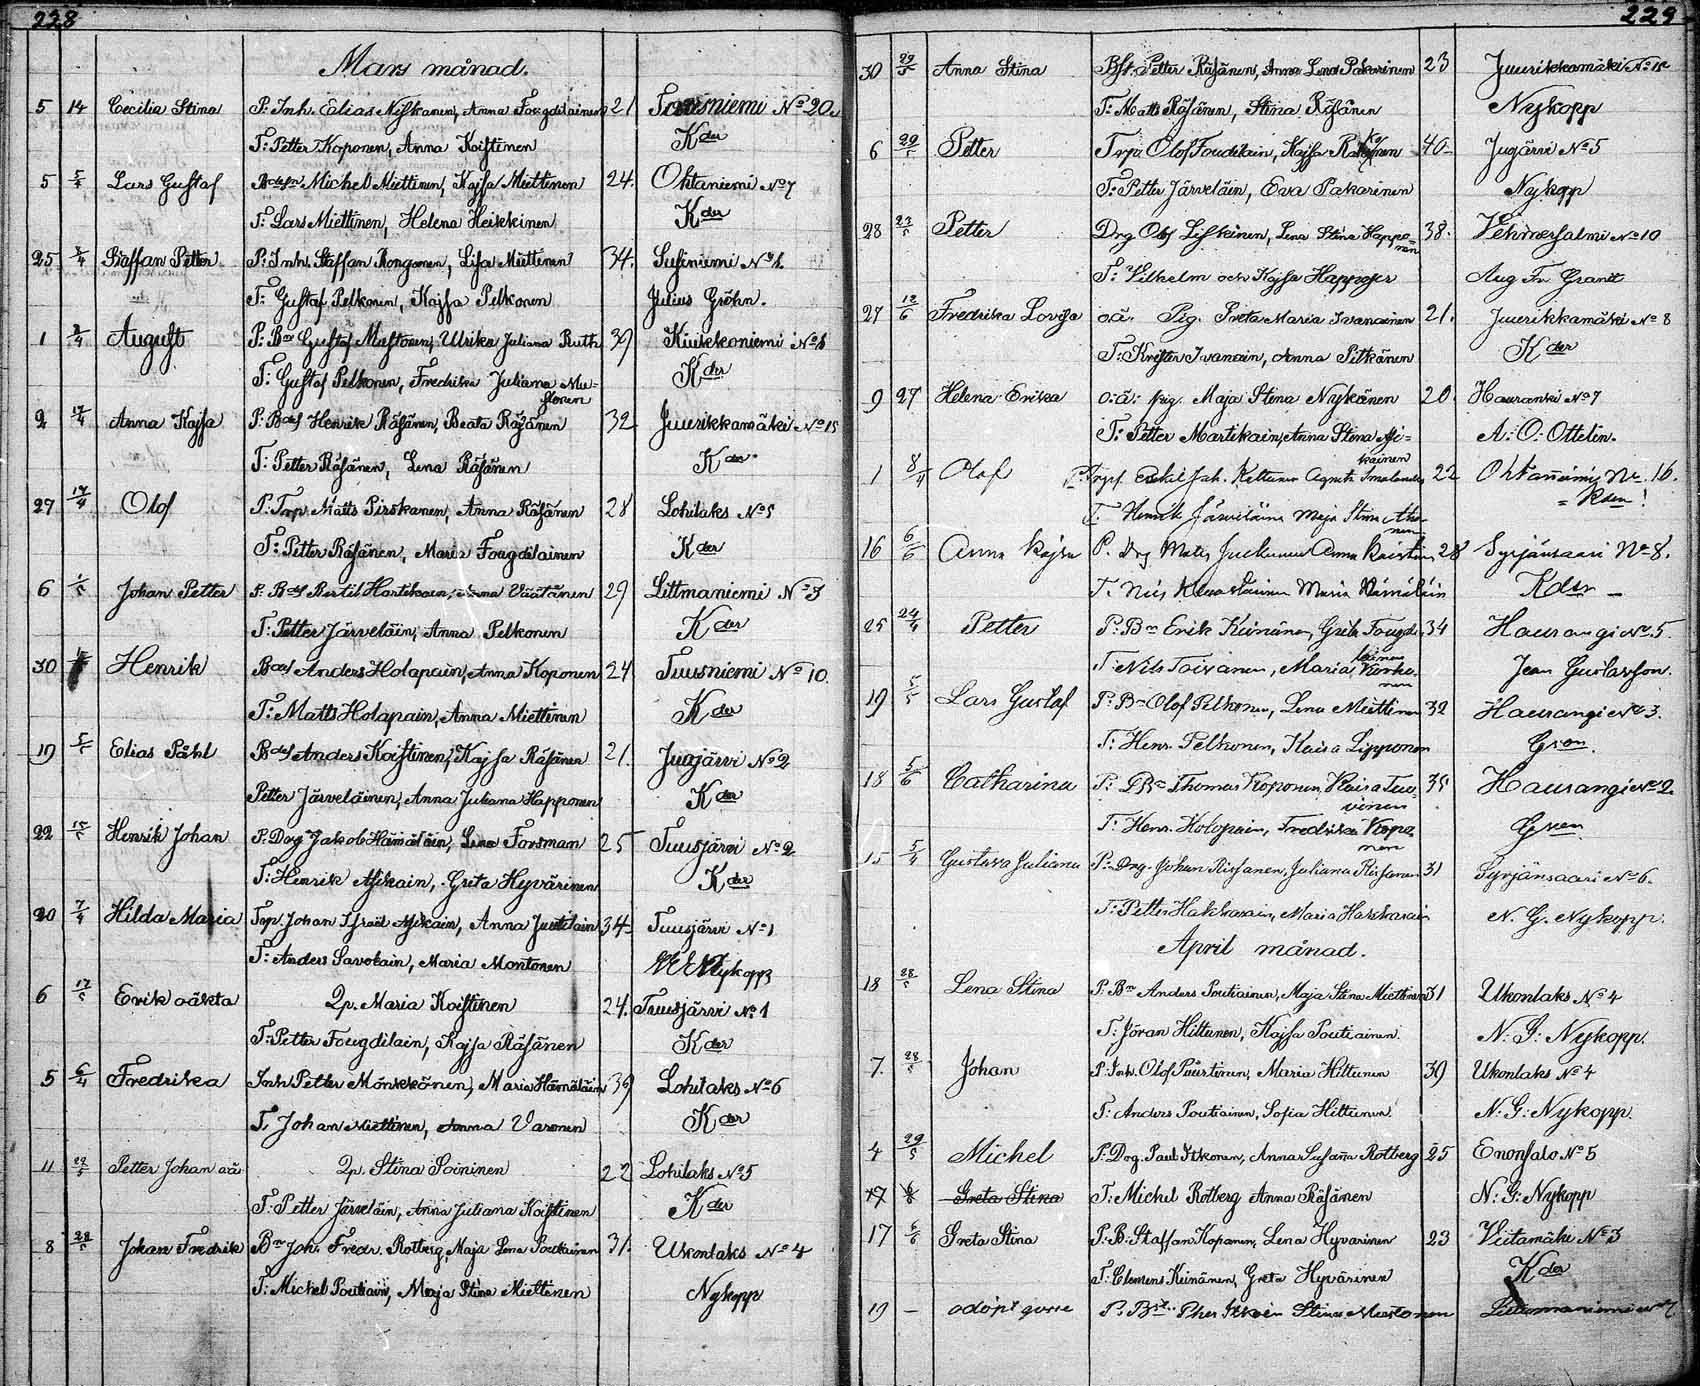 228
Mars månad.
5 14 Cecilia Stina P. Inh. Elias Nyfkanen, Anna Fougdilainen 21 Tuusniemi No 20.
T: Petter Koponen, Anna Koiftinen Kder
5 5/4 Lars Guftaf Michel Miettinen, Kajfa Miettinen 24. Ohtaniemi No 7
T: Lars Miettinen, Helena Heikkinen Kder
25 3/4 Staffan Petter P: Inh. Staffan Rongonen, Lifa Miettinen 34. Sufiniemi No
T: Guftaf Pelkonen, Kajfa Pelkonen Julius Gröhn.
1 2/4 Auguft P: Bn Guftaf Muftonen, Ulrika Juliana Ruth 39 Kiukkoniemi No
T: Guftaf Pelkonen, Fredrika Juliana Mu=
ftonen Kder
2 17/4 Anna Kajfa P: Bdef Henrik Räfänen, Beata Räfänen 32 Juurikkamäki No 15
T: Petter Räfänen, Lena Räfänen Kder
27 17/4 Olof P: Torp. Matts Pirskanen, Anna Räfänen 28 Lohilaks No 5
T: Petter Räfänen, Maria Fougdilainen Kder
6 1/5 Johan Petter P. Bdef Bertil Hartikain, Anna Väätänen 29 Littmaniemi No 3
T: Petter Järveläin, Anna Pelkonen Kder
30 Henrik Bdef Anders Holapain, Anna Koponen 24 Tuusniemi No 10.
T: Matts Holapain, Anna Miettinen Kder
19 5/5 Elias Påhl Bdef Anders Koiftinen, Kajfa Räfänen 21. Jugjärvi No 2
Petter Järveläinen, Anna Juliana Happonen Kder
22 15/5 Henrik Johan P. Drg Jakob Hämäläin, Lena Forsman 25 Tuusjärvi No 2
T: Henrik Afikain, Greta Hyvärinen Kder
20 7/4 Hilda Maria Torp. Johan Ifraël Afikain, Anna Juutilain 34 Tuusjärvi No 1
T: Anders Savolain, Maria Montonen Nykopp
6 17/5 Erik oäkta Qp. Maria Koiftinen 24. Tuusjärvi No 1
T: Petter Fougdilain, Kajfa Räfänen Kder
5 6/4 Fredrika Inh. Petter Mönkkönen, Maria Hämäläin 39 Lohilaks No 6
T. Johan Miettinen, Anna Varonen Kder
11 22/5 Petter Johan oä Qp. Stina Soininen 22 Lohilaks No 5
T: Petter Järveläin, Anna Juliana Koiftinen Kder
8 28/5 Johan Fredrik Bn Joh. Fredr. Rotberg, Maja Lena Poutiainen 31. Ukonlaks No 4
T: Michel Poutiain, Maja Stina Miettinen Nykopp
229
30 29/5 Anna Stina Bft. Petter Räfänen, Anna Lena Pakarinen 23 Juurikkamäki No
T: Matts Räfänen, Stina Räfänen Nykopp
6 29/5 Petter Torp. Olof Foudilain, Kajfa 40 Jugärvi No 5
T: Petter Järveläin, Eva Pakarinen Nykopp
28 23/5 Petter Drg Olof Lifkinen, Lena Stina Happo=
nen 38. Vehmersalmi No 10
T: Vilhelm och Kajfa Happoger Aug Fr Granit
27 12/6 Fredrika Lovifa oä. Pig. Greta Maria Ivanainen 21. Juurikkamäki No 8
T: Krifter Ivanain, Anna Pitkänen Kder
9 27 Helena Erika o.ä: pig. Maja Stina Nykänen 20 Hauranki No 7
T: Petter Martikain, Anna Stina Afi=
kainen A: O: Ottelin.
1 8/4 Olof Eskil Joh. Keltunen Agneta Smolander 22 Ohtaniemi No. 16.
T. Henrik Järveläinen Maja Stina Kder!
16 6/6 Anna Kajsa P. Drg Mats Anna 28 Syrjänsaari No 8.
T. Nils Maria Hämäläin Kder
25 24/4 Petter P: Bn Erik Keinänen, Greta Fougdi
lainen 34 Hausangi No 5.
T: Nils Toivanen, Maria Jean Gustafsson.
19 5/5 Lars Gustaf P: Bn Olof Pelkonen, Lena Miettinen 32 Hausangi No 3.
T: Henr. Pelkonen, Kaisa Lipponen Gson.
18 5/6 Catharina P: Bn Thomas Koponen, Kaisa 35 Hausangi No 2.
T: Henr. Holopain, Fredrika Kopo
nen Gson
15 5/4 Gustava Juliana P: Drg. Johan Rissanen, Juliana Rissanen 31 Syrjänsaari No 6.
T: Petter Hakkarain, Maria Hakkarain N. G. Nykopp.
April månad.
18 28/5 Lena Stina P. Bn Anders Poutiainen, Maja Stina Miettinen 31 Ukonlaks No 4
T: Jöran Hiltunen, Kajfa Poutiainen. N. G: Nykopp.
7. 28/5 Johan P. Inh. Olof Puurtinen, Maria Hiltunen 39 Ukonlaks No 4
T: Anders Poutiainen, Sofia Hiltunen N: G: Nykopp.
4 29/5 Michel P: Drg. Paul Itkonen, Anna Sufanna Rotberg 25 Enonfalo No 5
17 6/6 Greta Stina T: Michel Rotberg Anna Räfänen N: G: Nykopp
17 6/6 Greta Stina P: B: Staffan Kopanen, Lena Hyvarinen 23 Viitamäki No 3
T: Clemens Keinänen, Greta Hyvärinen Kder
19 — odöpt gosse Stina